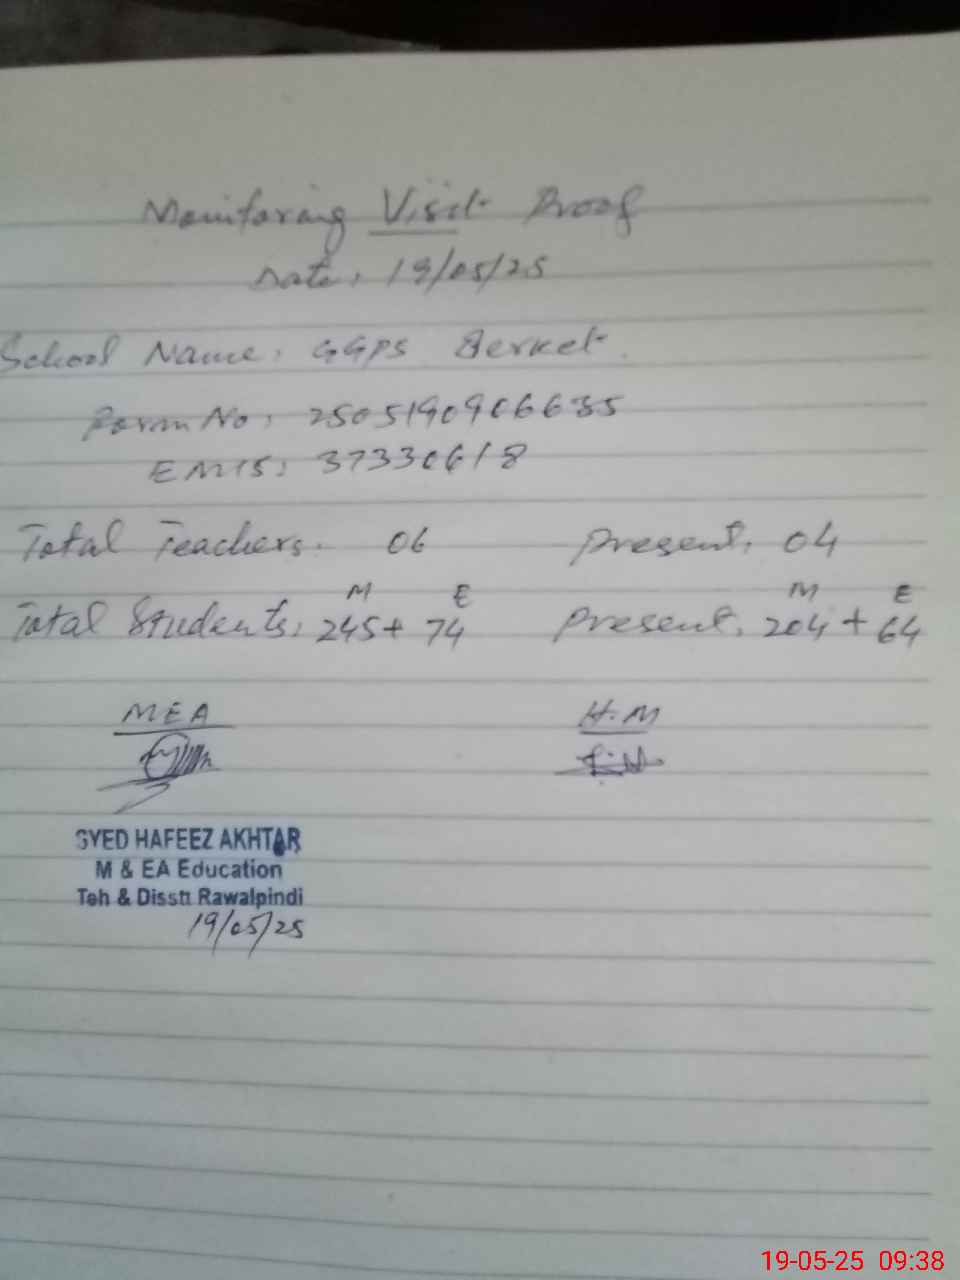 Monitoring Visit Proof
Date: 19/05/25
School Name: GGPS Berket.
Form No: 2505190906635
EMIS: 37330618
Total Teachers. 06 Present. 04
M E M E
Total Students: 245+ 74 Present. 204 + 64
MEA H.M
SYED HAFEEZ AKHTAR
M & EA Education
Teh & Disstt Rawalpindi
19/05/25
19-05-25 09:38